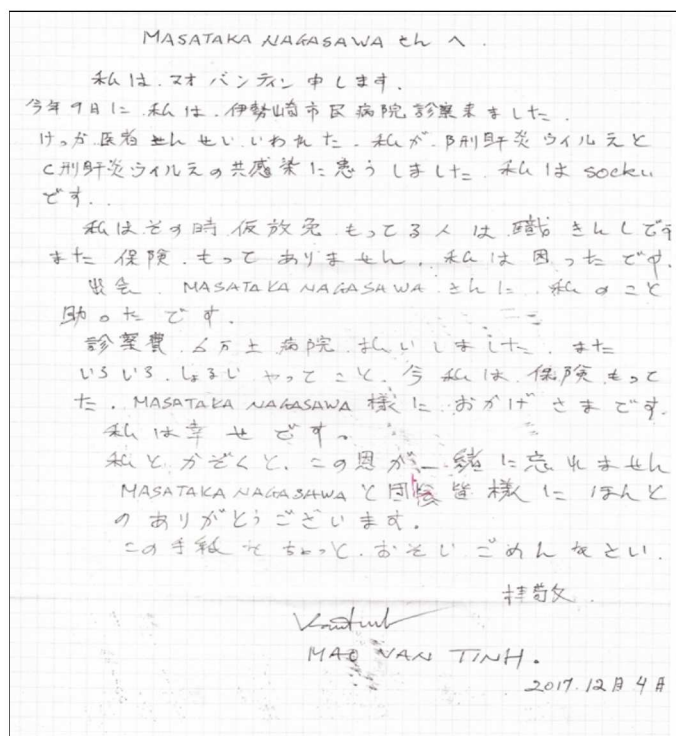 MASATAKA NAGASAWA さん へ.
私は.マオ バンティン 申します.
今年9日に 私は.伊勢崎市民病院 診察来ました.
けっか 医者 せんせい いわれた.私が.B刑肝炎ウイルスと
C刑肝炎ウイルスの共感染に患うしました 私はsocku
です..
私はその時 仮放免 もってる人は 職きんしです
また 保険.もって ありません.私は困ったです.
出会 MASATAKA NAGASAWA さんに 私のこと
助ったです.
診察費.6万士 病院 払いしました.また
いろいろ.しょるい やってこと.今 私は.保険もって
た.MASATAKA NAGASAWA 様に おかげさまです.
私は幸せです。
私とかぞくと.この恩が一緒に忘れません
MASATAKA NAGASAWA と団 皆様に ほんと
のありがとうございます.
この手紙をちょっと.おそいごめんなさい.
拝
MAO VAN TINH.
2017.12月4日